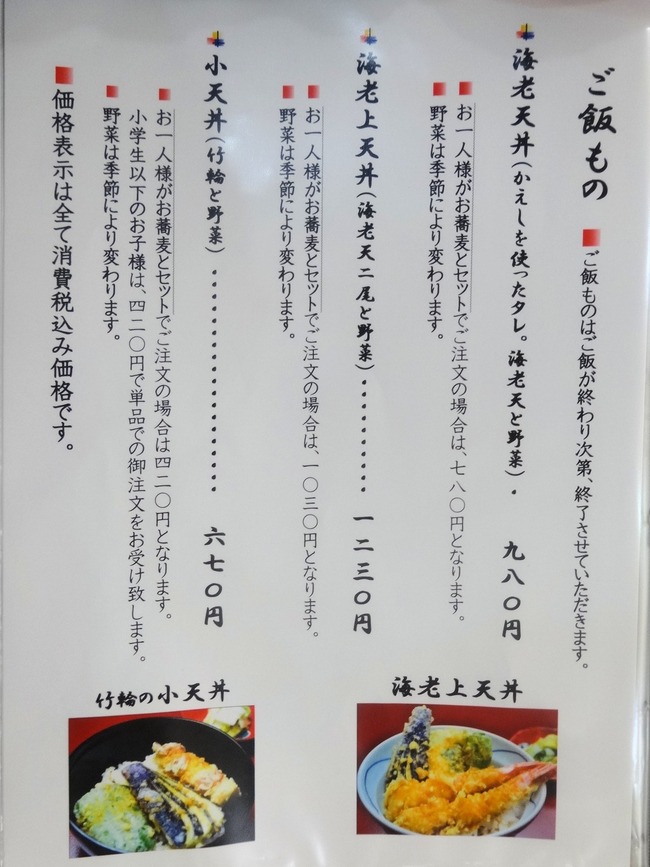 ご飯もの
ご飯ものはご飯が終わり次第、終了させていただきます。
海老天丼(かえしを使ったタレ。海老天と野菜)・ 九八〇円
お一人様がお蕎麦とセットでご注文の場合は、七八〇円となります。
野菜は季節により変わります。
海老上天丼(海老天二尾と野菜)・・・・・・・・・・ 一二三〇円
お一人様がお蕎麦とセットでご注文の場合は、一〇三〇円となります。
野菜は季節により変わります。
小天丼(竹輪と野菜)・・・・・・・・・・・・・・・・・・ 六七〇円
お一人様がお蕎麦とセットでご注文の場合は四二〇円となります。
小学生以下のお子様は、四二〇円で単品での御注文をお受け致します。
野菜は季節により変わります。
価格表示は全て消費税込み価格です。
海老上天丼
竹輪の小天丼